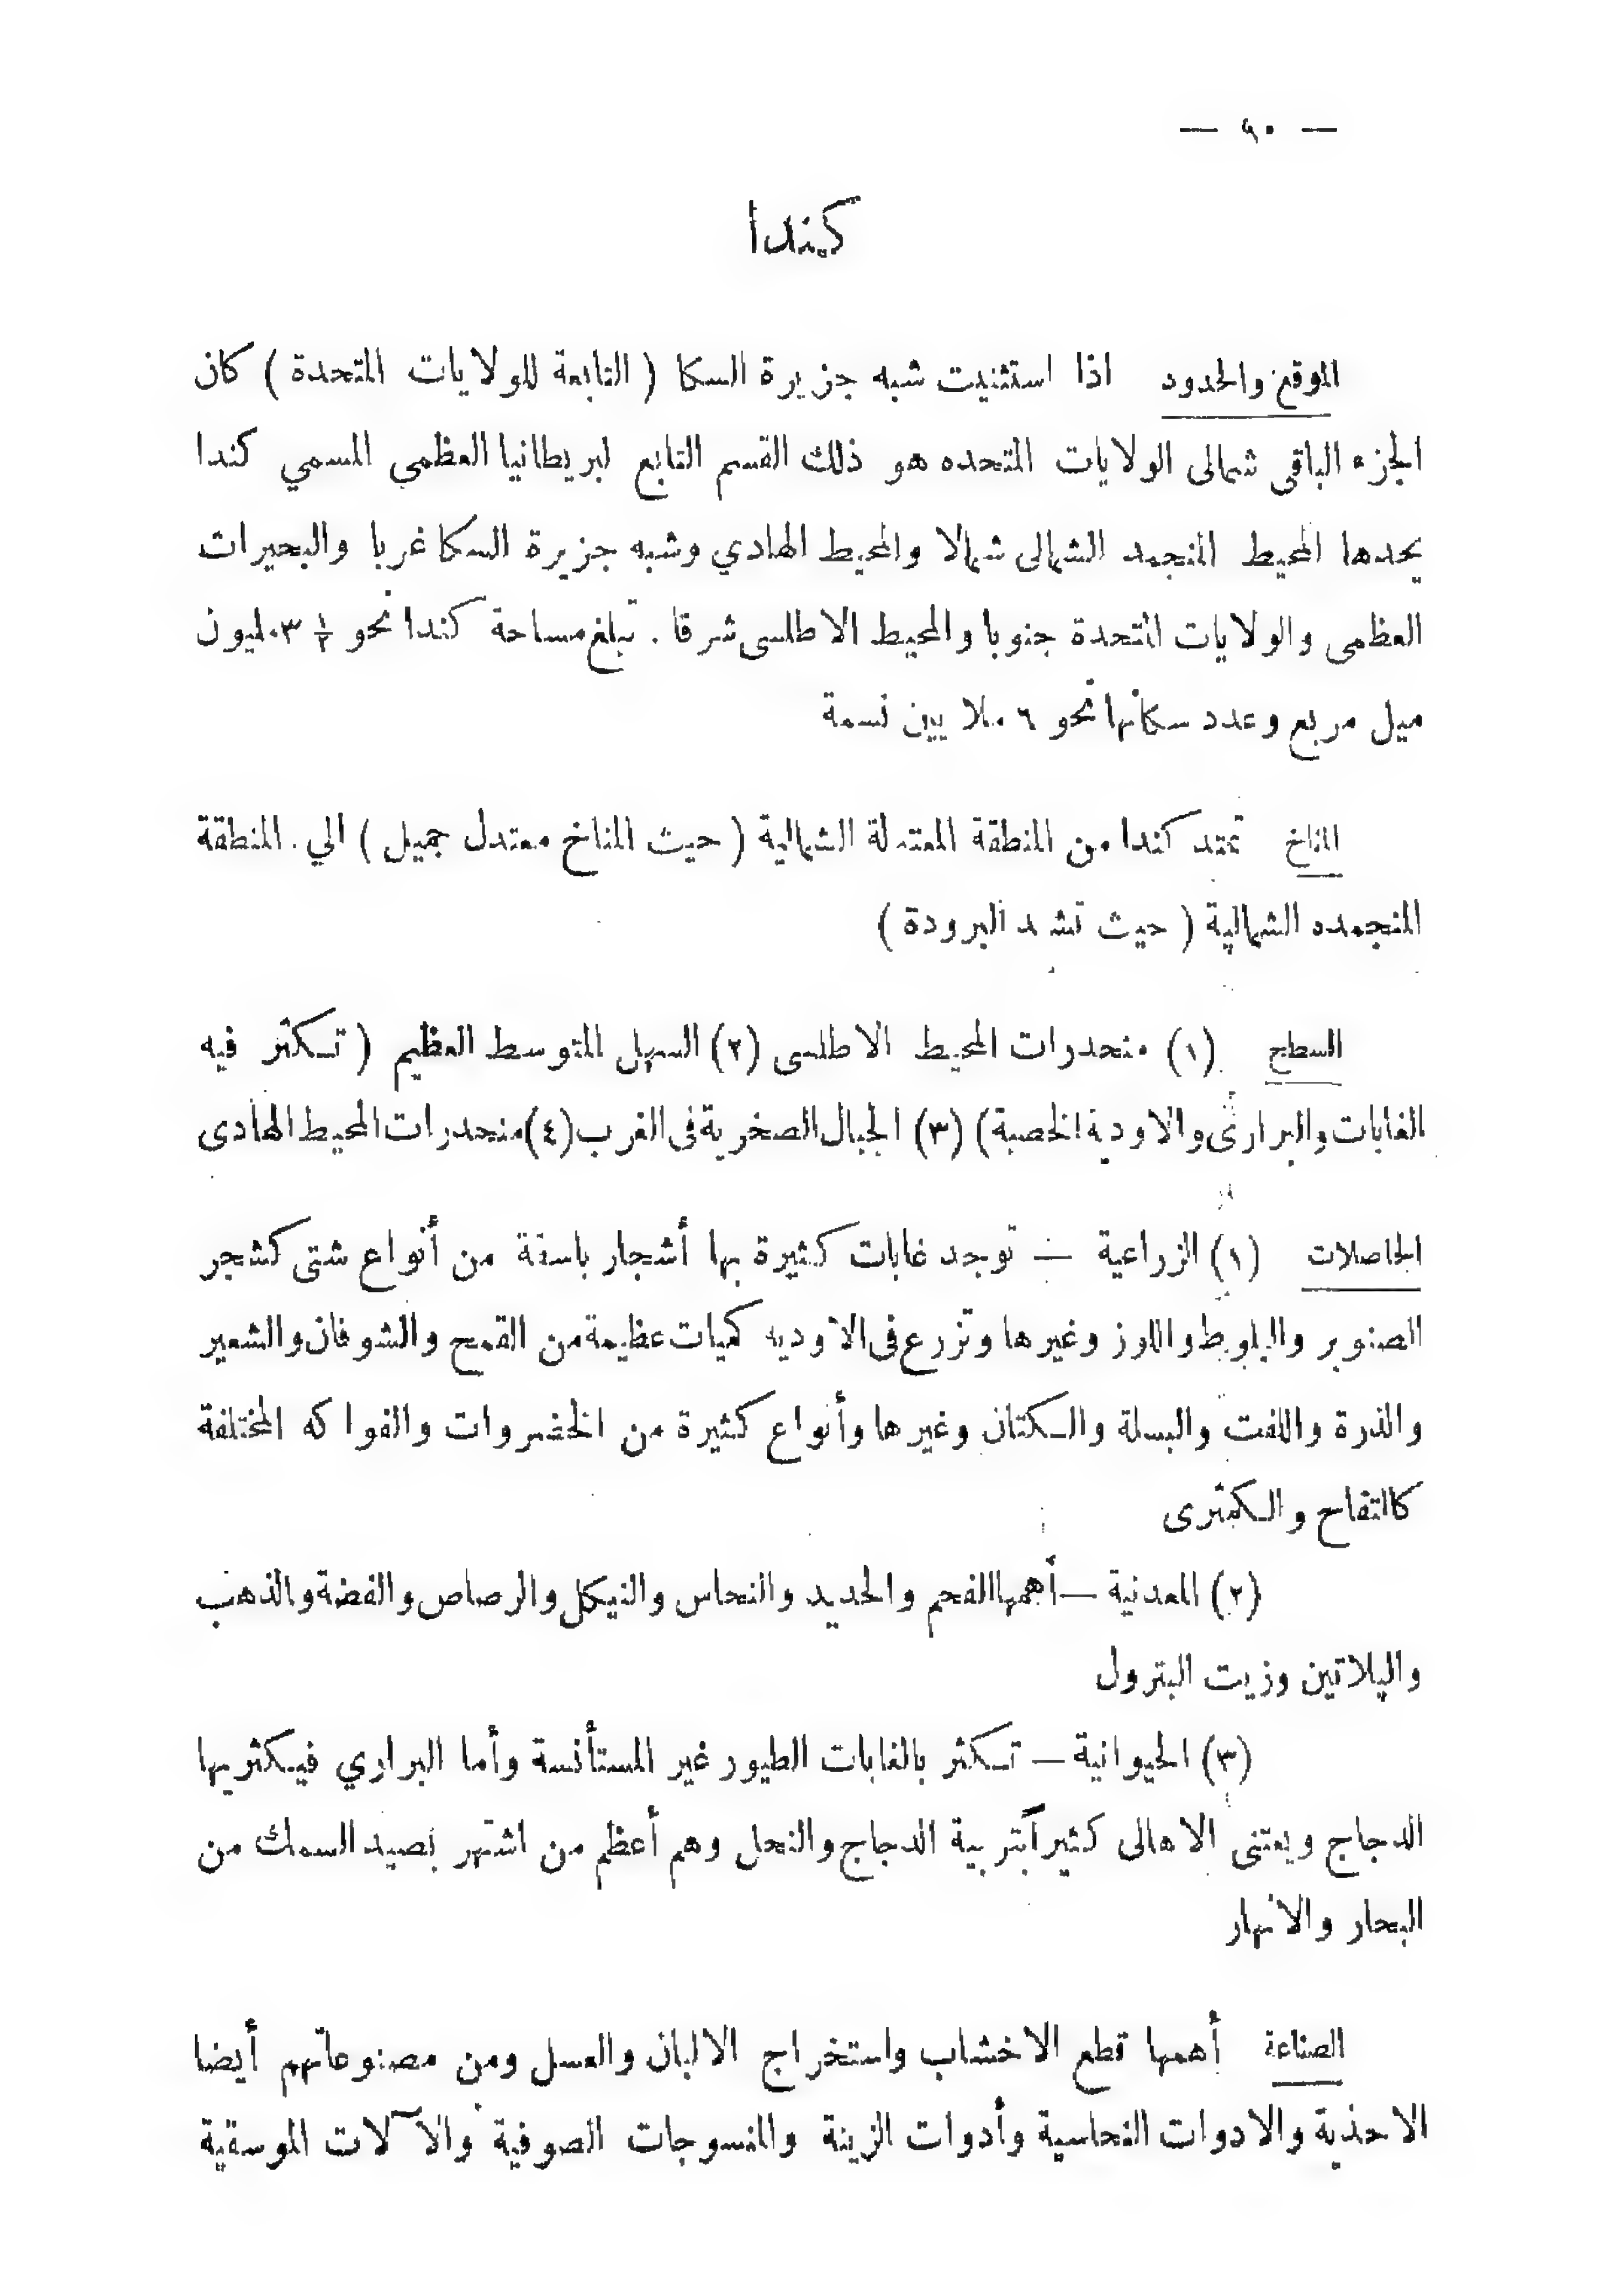 — ٩٠ —
كندا
الموقع والحدود اذا استثنيت شبه جزيرة السكا ( التابعة للولايات المتحدة ) كان
الجزء الباقى شمالى الولايات المتحده هو ذلك القسم التابع لبريطانيا العظمى المسمي كندا
يحدها المحيط المنجمد الشمالى شمالا والمحيط الهادي وشبه جزيرة السكا غربا والبحيرات
العظمى والولايات المتحدة جنوبا والمحيط الاطلسى شرقا . تبلغ مساحة كندا نحو ½ ٣ مليون
ميل مربع وعدد سكانها نحو ٦ ملايين نسمة
المناخ تمتد كندا من المنطقة المعتدلة الشمالية ( حيث المناخ معتدل جميل ) الي المنطقة
المنجمده الشمالية ( حيث تشد البرودة )
السطح (١) منحدرات المحيط الاطلسى (٢) السهل المتوسط العظيم ( تكثر فيه
الغابات والبرارى والاودية الخصبة ) (٣) الجبال الصخرية فى الغرب (٤) منحدرات المحيط الهادى
الحاصلات (١) الزراعية — توجد غابات كثيرة بها أشجار باسقة من أنواع شتى كشجر
الصنوبر والبلوط والارز وغيرها وتزرع فى الاوديه كميات عظيمة من القمح والشوفان والشعير
والذرة واللفت والبسلة والكتان وغيرها وأنواع كثيرة من الخضروات والفواكه المختلفة
كالتفاح والكمثرى
(٢) المعدنية — أهمها الفحم والحديد والنحاس والنيكل والرصاص والفضة والذهب
والپلاتين وزيت البترول
(٣) الحيوانية — تكثر بالغابات الطيور غير المستأنسة وأما البراري فيكثر بها
الدجاج ويعتنى الاهالى كثيراً بتربية الدجاج والنحل وهم أعظم من اشتهر بصيد السمك من
البحار والانهار
الصناعة أهمها قطع الاخشاب واستخراج الالبان والعسل ومن مصنوعاتهم أيضا
الاحذية والادوات النحاسية وأدوات الزينة والمنسوجات الصوفية والآلات الموسقية